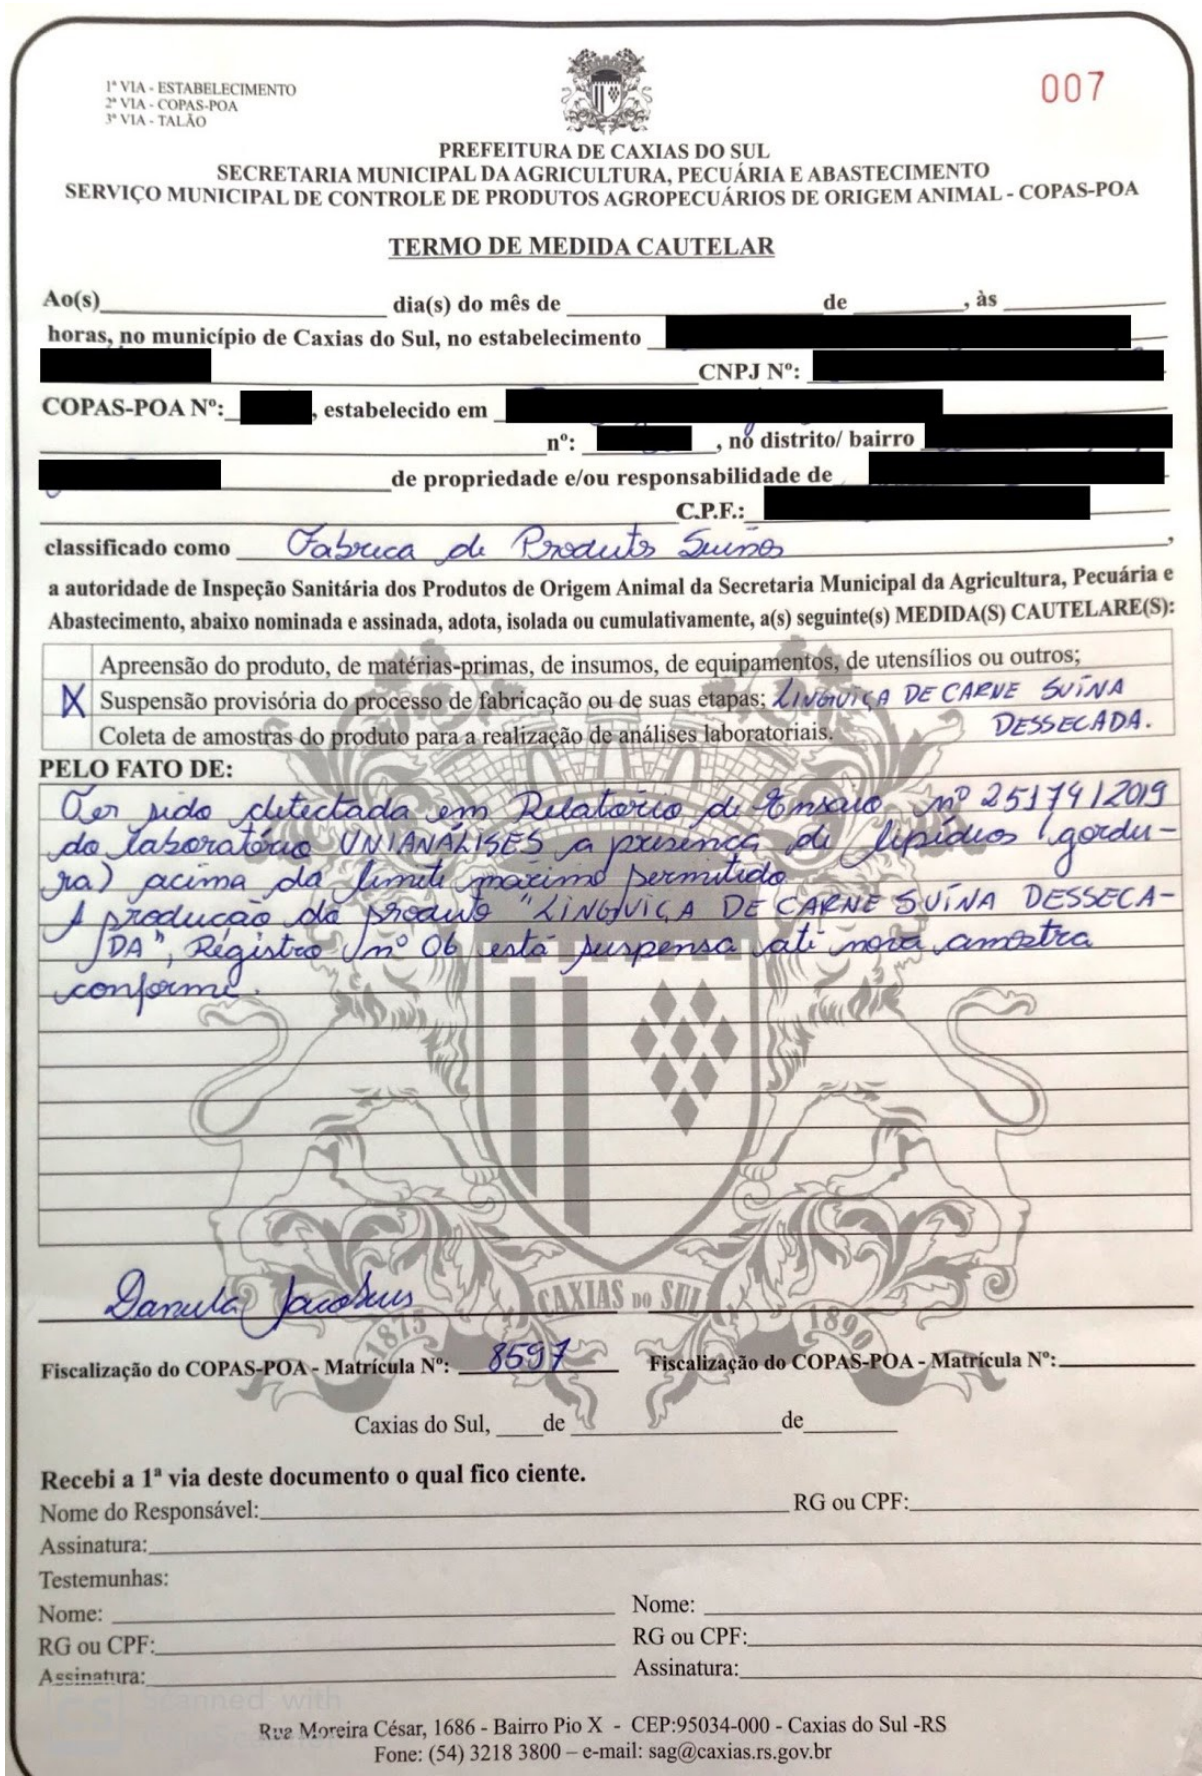 1ª VIA - ESTABELECIMENTO
2ª VIA - COPAS-POA
3ª VIA - TALÃO
007
PREFEITURA DE CAXIAS DO SUL
SECRETARIA MUNICIPAL DA AGRICULTURA, PECUÁRIA E ABASTECIMENTO
SERVIÇO MUNICIPAL DE CONTROLE DE PRODUTOS AGROPECUÁRIOS DE ORIGEM ANIMAL - COPAS-POA
TERMO DE MEDIDA CAUTELAR
Ao(s) dia(s) do mês de de , às
horas, no município de Caxias do Sul, no estabelecimento
CNPJ Nº:
COPAS-POA Nº: , estabelecido em
nº: , no distrito/ bairro
de propriedade e/ou responsabilidade de
C.P.F.:
classificado como Fabrica de Produtos Suínos ,
a autoridade de Inspeção Sanitária dos Produtos de Origem Animal da Secretaria Municipal da Agricultura, Pecuária e
Abastecimento, abaixo nominada e assinada, adota, isolada ou cumulativamente, a(s) seguinte(s) MEDIDA(S) CAUTELARE(S):
Apreensão do produto, de matérias-primas, de insumos, de equipamentos, de utensílios ou outros;
X Suspensão provisória do processo de fabricação ou de suas etapas; LINGUIÇA DE CARNE SUÍNA
DESSECADA.
Coleta de amostras do produto para a realização de análises laboratoriais.
PELO FATO DE:
Ter sido detectada em Relatório de Ensaio nº 25174/2019
do laboratório UNIANÁLISES a presença de lipídios (gordu-
ra) acima do limite máximo permitido.
A produção do produto "LINGUIÇA DE CARNE SUÍNA DESSECA-
DA", Registro nº 06 está suspensa até nova amostra
conforme.
Danula Jacobus
CAXIAS DO SUL
1875 1890
Fiscalização do COPAS-POA - Matrícula Nº: 8597 Fiscalização do COPAS-POA - Matrícula Nº:
Caxias do Sul, de de
Recebi a 1ª via deste documento o qual fico ciente.
Nome do Responsável: RG ou CPF:
Assinatura:
Testemunhas:
Nome: Nome:
RG ou CPF: RG ou CPF:
Assinatura: Assinatura:
CS Scanned with
Rua Moreira César, 1686 - Bairro Pio X - CEP:95034-000 - Caxias do Sul -RS
Fone: (54) 3218 3800 – e-mail: sag@caxias.rs.gov.br